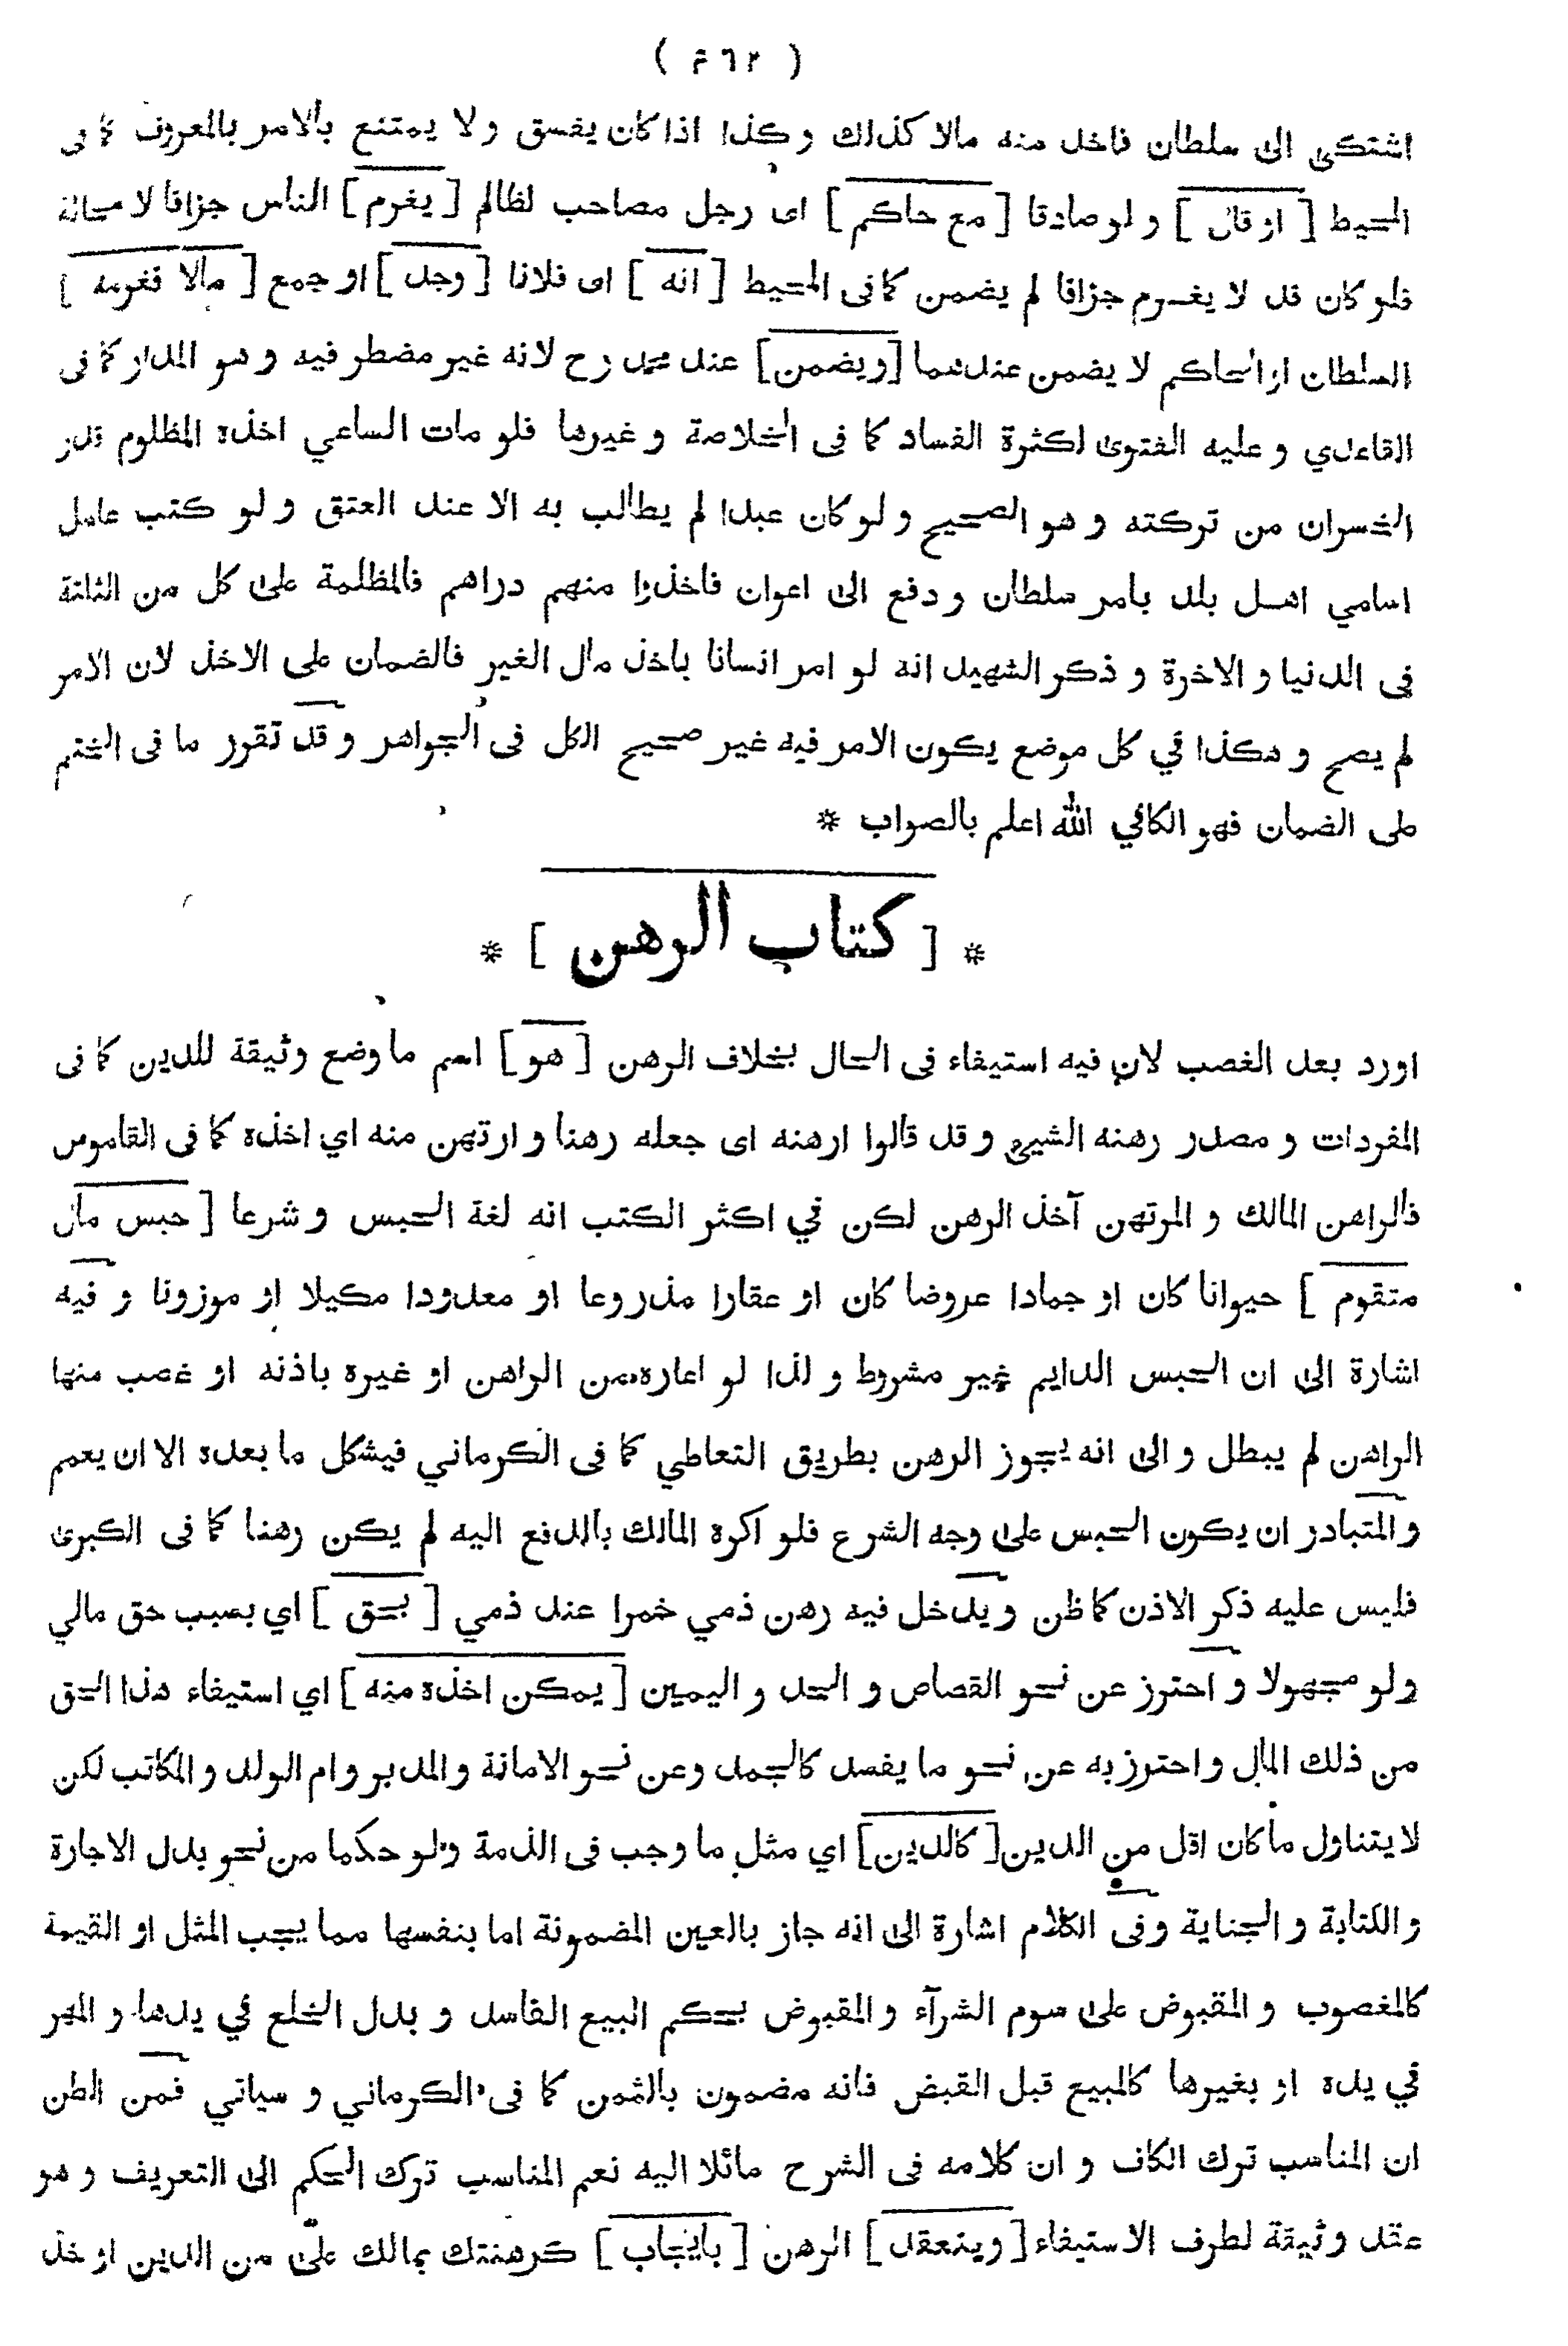 ( ٦٢م )
اشتكى الى سلطان فاخذ منه مالا كذلك وكذا اذا كان يفسق ولا يمتنع بالامر بالمعروف كما فى
المحيط [ او قال ] ولو صادقا [ مع حاكم ] اى رجل مصاحب لظالم [ يغرم ] الناس جزافا لا محالة
فلو كان قد لا يغرم جزافا لم يضمن كما فى المحيط [ انه ] اى فلانا [ وجد ] او جمع [ مالا فغرمه ]
السلطان او الحاكم لا يضمن عندهما [ ويضمن ] عند محمد رح لانه غير مضطر فيه وهو المدار كما فى
القاعدي وعليه الفتوى لكثرة الفساد كما فى الخلاصة وغيرها فلو مات الساعي اخذه المظلوم قدر
الخسران من تركته وهو الصحيح ولو كان عبدا لم يطالب به الا عند العتق ولو كتب عامل
اسامي اهل بلد بامر سلطان ودفع الى اعوان فاخذوا منهم دراهم فالمظلمة على كل من الثلثة
فى الدنيا والاخرة وذكر الشهيد انه لو امر انسانا باخذ مال الغير فالضمان على الاخذ لان الامر
لم يصح وهكذا في كل موضع يكون الامر فيه غير صحيح الكل فى الجواهر وقد تقرر ما فى الختم
على الضمان فهو الكافي الله اعلم بالصواب *
* [ كتاب الرهن ] *
اورد بعد الغصب لان فيه استيفاء فى الحال بخلاف الرهن [ هو ] اسم ما وضع وثيقة للدين كما فى
المفردات ومصدر رهنه الشيئ وقد قالوا ارهنه اى جعله رهنا وارتهن منه اي اخذه كما فى القاموس
فالراهن المالك والمرتهن آخذ الرهن لكن في اكثر الكتب انه لغة الحبس وشرعا [ حبس مال
متقوم ] حيوانا كان او جمادا عروضا كان او عقارا مذروعا او معدودا مكيلا او موزونا وفيه
اشارة الى ان الحبس الدايم غير مشروط ولذا لو اعاره من الراهن او غيره باذنه او غصب منها
الراهن لم يبطل والى انه يجوز الرهن بطريق التعاطي كما فى الكرماني فيشكل ما بعده الا ان يعمم
والمتبادر ان يكون الحبس على وجه الشرع فلو اكره المالك بالدفع اليه لم يكن رهنا كما فى الكبرى
فليس عليه ذكر الاذن كما ظن ويدخل فيه رهن ذمي خمرا عند ذمي [ بحق ] اي بسبب حق مالي
ولو مجهولا واحترز عن نحو القصاص والحد واليمين [ يمكن اخذه منه ] اي استيفاء هذا الحق
من ذلك المال واحترز به عن نحو ما يفسد كالجمد وعن نحو الامانة والمدبر وام الولد والمكاتب لكن
لا يتناول ما كان اقل من الدين [ كالدين ] اي مثل ما وجب فى الذمة ولو حكما من نحو بدل الاجارة
والكتابة والجناية وفى الكلام اشارة الى انه جاز بالعين المضمونة اما بنفسها مما يجب المثل او القيمة
كالمغصوب والمقبوض على سوم الشرآء والمقبوض بحكم البيع الفاسد وبدل الخلع في يدها والمهر
في يده او بغيرها كالمبيع قبل القبض فانه مضمون بالثمن كما فى الكرماني وسياتي فمن الظن
ان المناسب ترك الكاف وان كلامه فى الشرح مائلا اليه نعم المناسب ترك الحكم الى التعريف وهو
عقد وثيقة لطرف الاستيفاء [ وينعقد ] الرهن [ بايجاب ] كرهنتك بمالك علىّ من الدين او خذ